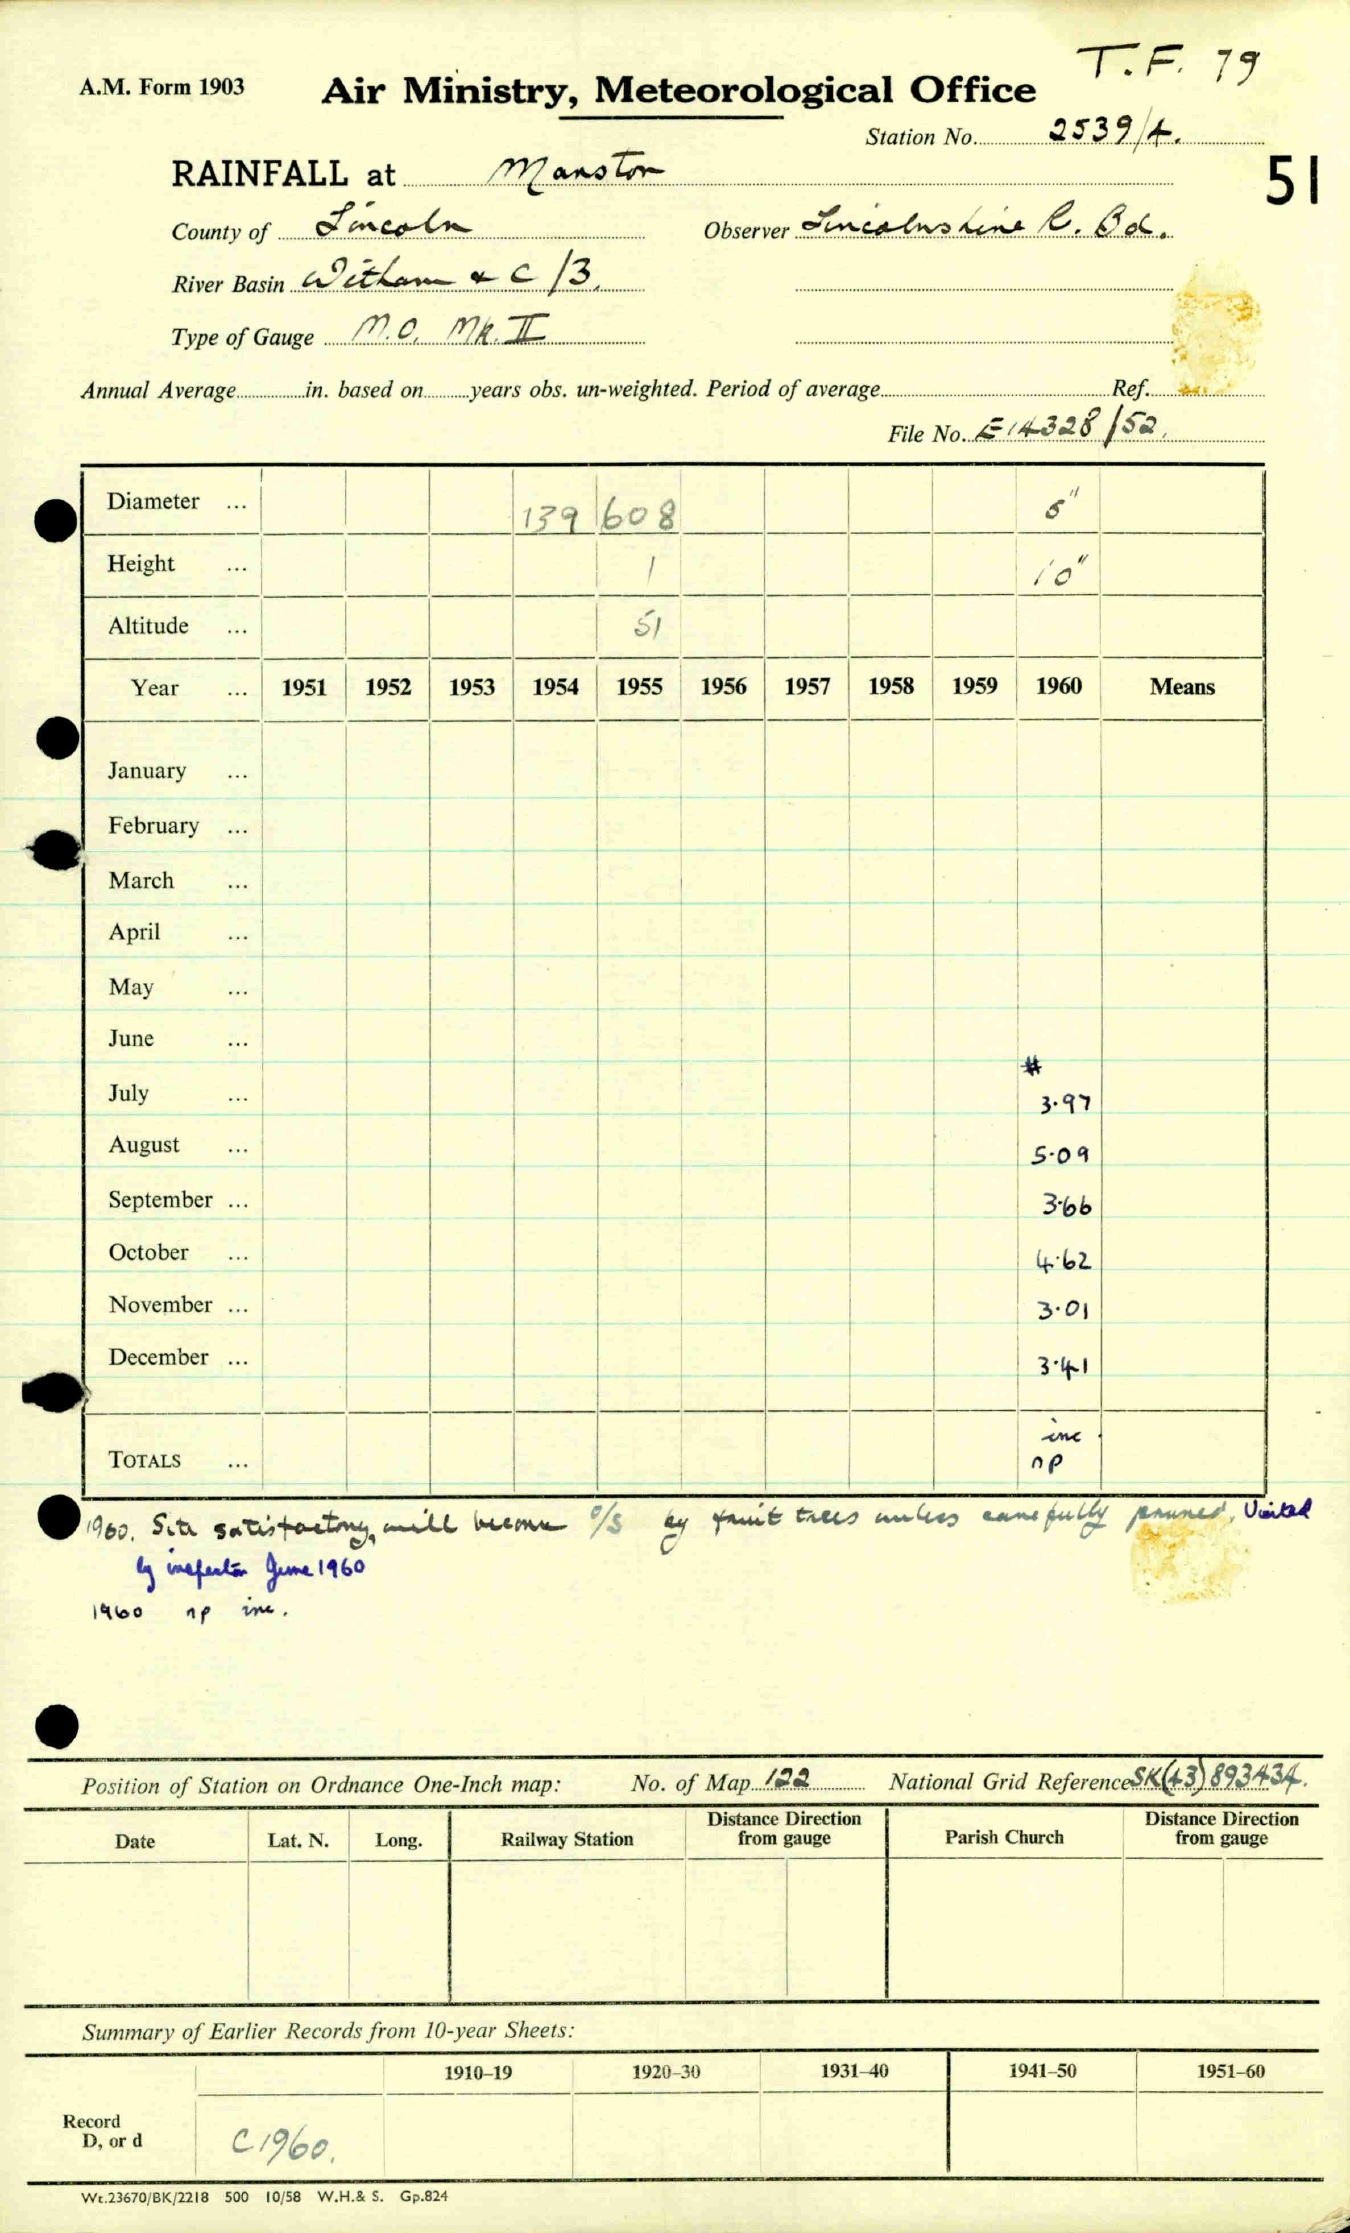 T.F. 79
A.M. Form 1903 Air Ministry, Meteorological Office
Station No. 2539/4.
51
RAINFALL at Marston
County of Lincoln Observer Lincolnshire R. Bd.
River Basin Witham & C /3.
Type of Gauge M.O. Mk. II
Annual Average in. based on years obs. un-weighted. Period of average Ref.
File No. E14328/52.
Diameter ... 139 608 5"
Height ... 1 10"
Altitude ... 51
Year ... 1951 1952 1953 1954 1955 1956 1957 1958 1959 1960 Means
January ...
February ...
March ...
April ...
May ...
June ...
#
July ... 3.97
August ... 5.09
September ... 3.66
October ... 4.62
November ... 3.01
December ... 3.41
inc
TOTALS ... np
1960. Site satisfactory, will become o/s by fruit trees unless carefully pruned. Visited
by inspector June 1960
1960 np inc.
Position of Station on Ordnance One-Inch map: No. of Map 122 National Grid Reference SK(43)893434.
Date Lat. N. Long. Railway Station Distance Direction from gauge Parish Church Distance Direction from gauge
Summary of Earlier Records from 10-year Sheets:
1910–19 1920–30 1931–40 1941–50 1951–60
Record
D, or d C1960.
Wt.23670/BK/2218 500 10/58 W.H.& S. Gp.824